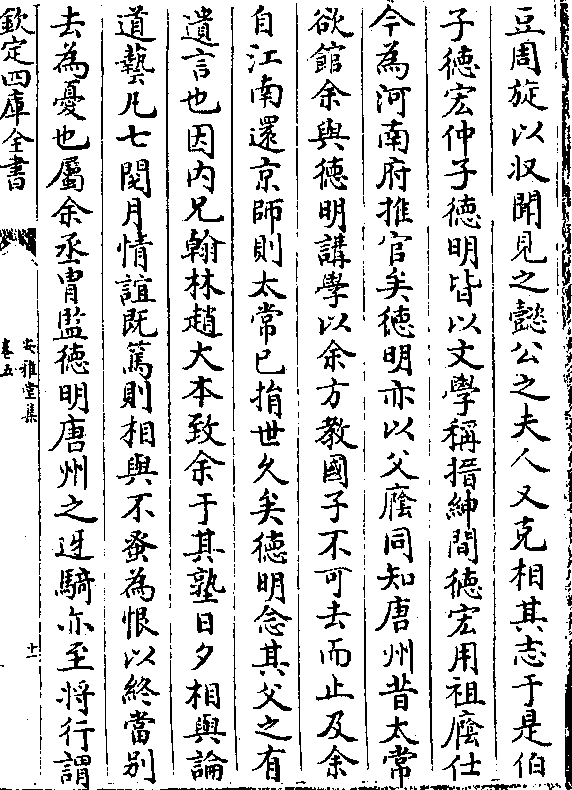 豆周旋以収聞見之懿公之夫人又克相其志于是伯
子徳宏仲子徳明皆以文學稱搢紳間徳宏用祖廕仕
今為河南府推官矣徳明亦以父廕同知唐州昔太常
欲館余與徳明講學以余方教國子不可去而止及余
自江南還京師則太常已捐世久矣徳明念其父之有
遺言也因内兄翰林趙大本致余于其塾日夕相與論
道藝凡七閱月情誼既篤則相與不蚤為恨以終當别
去為憂也屬余丞胄監徳明唐州之迓騎亦至将行謂
欽定四庫全書
安雅堂集
卷五
十一